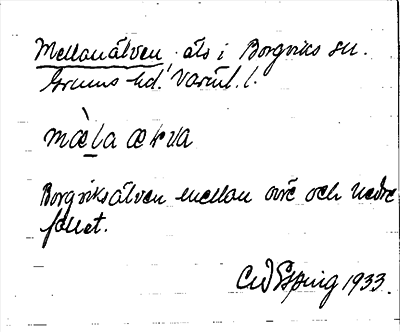 Mellanälven, älv i Borgviks sn.
Grums hd. Värml. l.
mæ̀la ærva
Borgviksälven mellan övre och nedre
fallet.
1933.